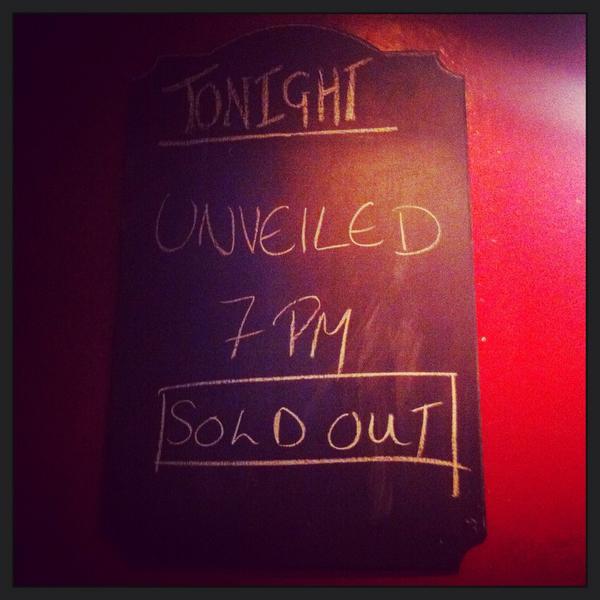 TONIGHT
UNVEILED
7 PM
SOLD OUT